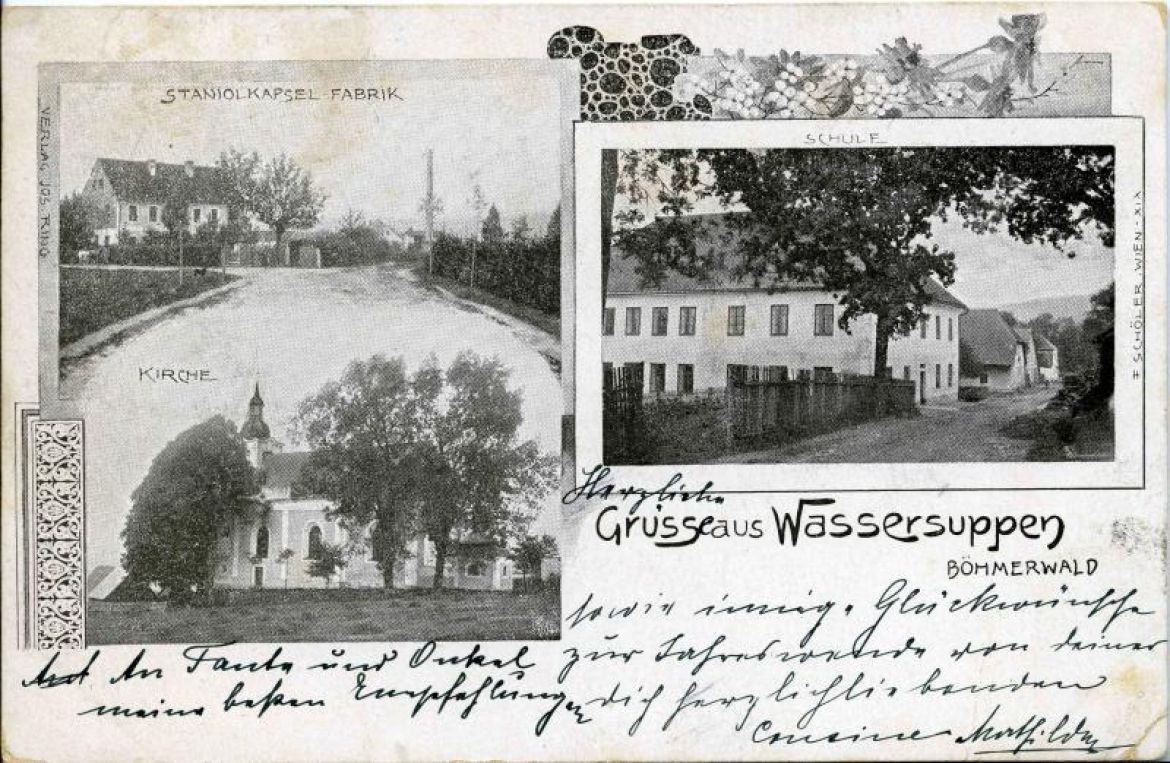 STANIOLKAPSEL-FABRIK
VERLAG JOS. RING
KIRCHE
SCHULE
# SCHÖLER, WIEN-XIX
Herzliche
Grüsse aus Wassersuppen
BÖHMERWALD
sowie innige Glückwünsche
zur Jahreswende von deiner
dich herzlichliebenden
Cousine Mathilde
An Tante und Onkel
meine beßten Empfehlungen